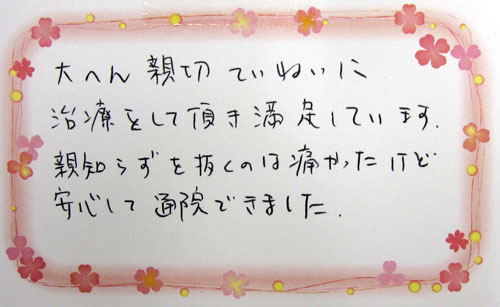 大へん親切ていねいに
治療をして頂き満足しています.
親知らずを抜くのは痛かったけど
安心して通院できました.